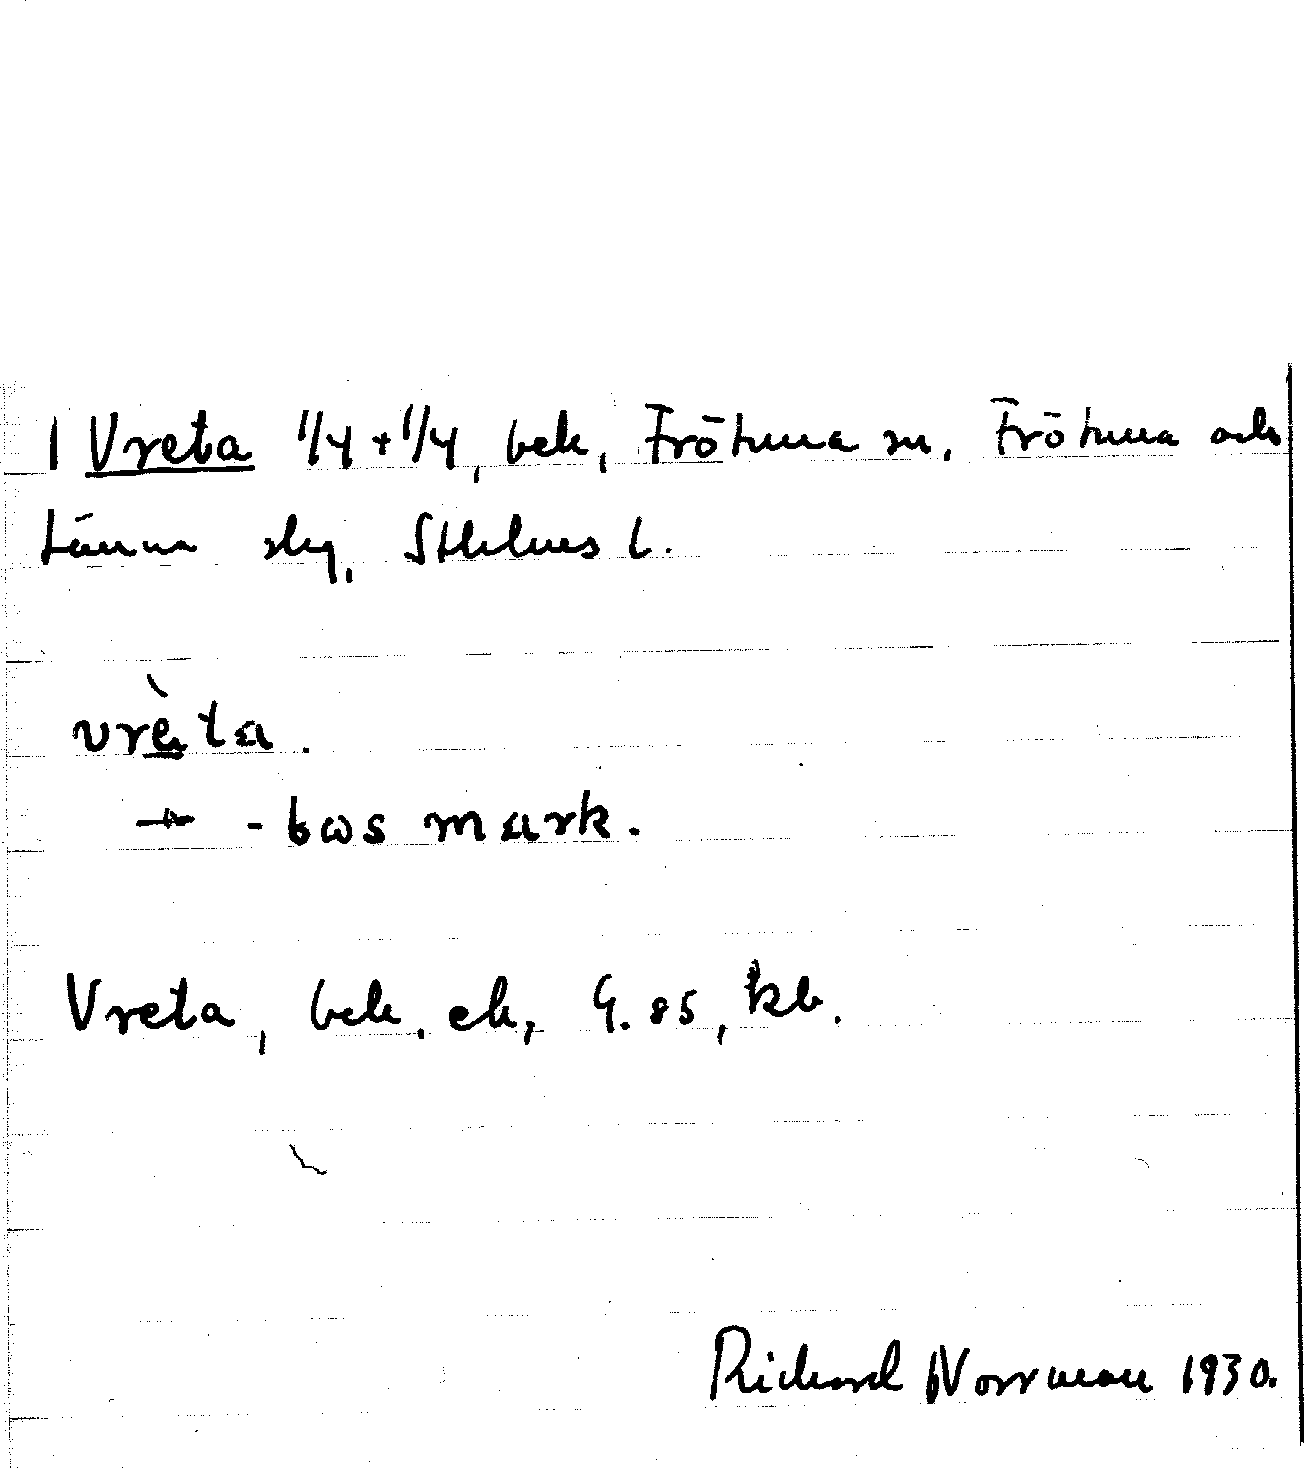 1 Vreta 1/4 + 1/4, bek, Frötuna sn, Frötuna och
Länna skg, Sthlms l.
vrèta.
-bos mark.
Vreta, bek. ek, G. 85, kb.
Richard Norrman 1930.